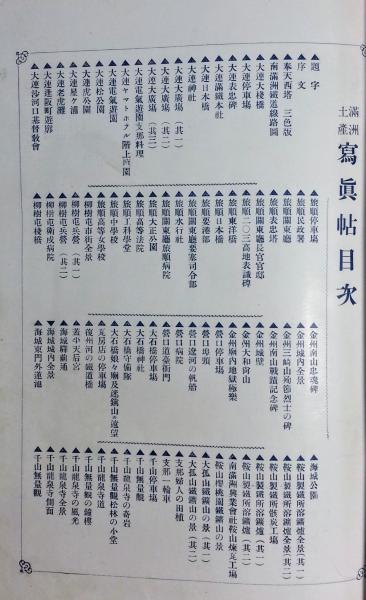 満洲
土産
寫眞帖目次
▲題字
▲序文
▲奉天西塔 三色版
▲南滿洲鐵道線路圖
▲大連大棧橋
▲大連停車場
▲大連表忠碑
▲大連滿鐵本社
▲大連日本橋
▲大連神社
▲大連大廣場(其一)
▲大連大廣場(其二)
▲大連大廣場(其三)
▲大連電氣遊園支那料理
▲大連ヤマトホテル階上庭園
▲大連電氣遊園
▲大連松公園
▲大連虎公園
▲大連星ヶ浦
▲大連老虎灘
▲大連逢阪町遊廓
▲大連沙河口基督敎會
▲旅順停車塲
▲旅順民政署
▲旅順關東廳
▲旅順關東廳長官官邸
▲旅順二〇三高地表議碑
▲旅順表忠塔
▲旅順東洋橋
▲旅順日本橋
▲旅順要港部
▲旅順關東廳要塞司令部
▲旅順水行社
▲旅順關東廳旅順病院
▲旅順大正公園
▲旅順高等法院
▲旅順工科學堂
▲旅順中學校
▲旅順高等女學校
▲柳樹屯市街全景
▲柳樹屯兵營(其一)
▲柳樹屯兵營(其二)
▲柳樹屯衞戍病院
▲柳樹屯棧橋
▲金州南山忠魂碑
▲金州城内全景
▲金州三崎山殉節烈士の碑
▲金州南山戰蹟記念碑
▲金州城壁
▲金州大和尙山
▲金州廟内地獄極樂
▲營口停車塲
▲營口埠頭
▲營口遼河の帆船
▲營口道臺衙門
▲營口病院
▲大石橋停車塲
▲大石橋神社
▲大石橋守備隊
▲大石橋娘々廟及迷鎭山の遠望
▲瓦房店の停車塲
▲復州河の鐵道橋
▲蓋平天后宮
▲海城驛前通
▲海城城内全景
▲海城東門外蓮池
▲海城公園
▲鞍山製鐵所溶鑛爐全景(其一)
▲鞍山製鐵所溶鑛爐全景(其二)
▲鞍山製鐵所骸炭工場
▲鞍山製鐵所溶鑛爐(其一)
▲鞍山製鐵所溶鑛爐(其二)
▲南滿洲興業會社鞍山煉瓦工場
▲鞍山櫻桃園鐵鑛山の景
▲大孤山鐵鑛山の景(其一)
▲大孤山鐵鑛山の景(其二)
▲支那婦人の田植
▲支那一輪車
▲千山停車塲
▲千山無量觀
▲千山龍泉寺の奇岩
▲千山無量觀松林の小堂
▲千山龍泉寺道
▲千山無量觀の鐘樓
▲千山龍泉寺の風光
▲千山龍泉寺全景
▲千山龍泉寺側面
▲千山無量觀